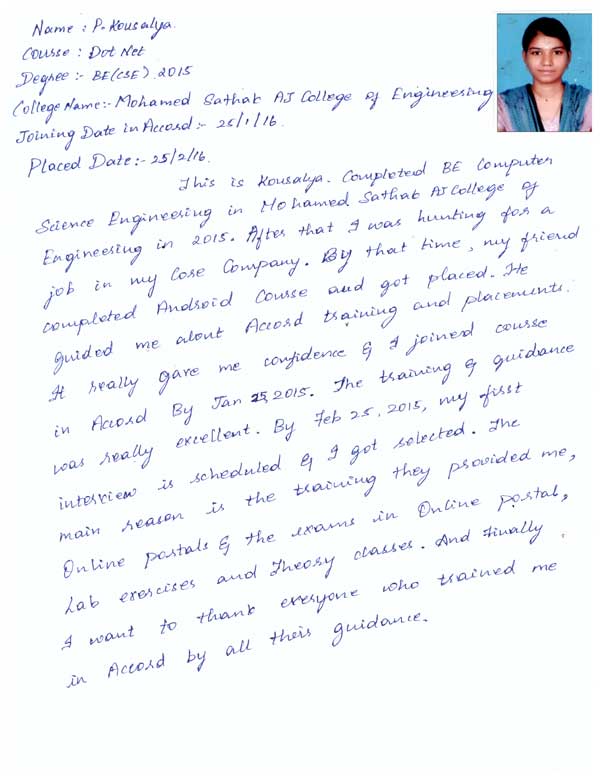 Name : P. Kousalya.
Course : Dot Net
Degree :- BE(CSE). 2015
College Name:- Mohamed Sathak AJ College of Engineering
Joining Date in Accord:- 25/1/16.
Placed Date:- 25/2/16.
This is Kousalya. Completed BE Computer
Science Engineering in Mohamed Sathak AJ College of
Engineering in 2015. After that I was hunting for a
job in my Core Company. By that time, my friend
completed Android Course and got placed. He
guided me about Accord training and placements.
It really gave me confidence & I joined course
in Accord By Jan 25, 2015. The training & guidance
was really excellent. By Feb 25, 2015, my first
interview is scheduled & I got selected. The
main reason is the training they provided me,
Online portals & the exams in Online portal,
Lab exercises and Theory classes. And Finally
I want to thank everyone who trained me
in Accord by all their guidance.